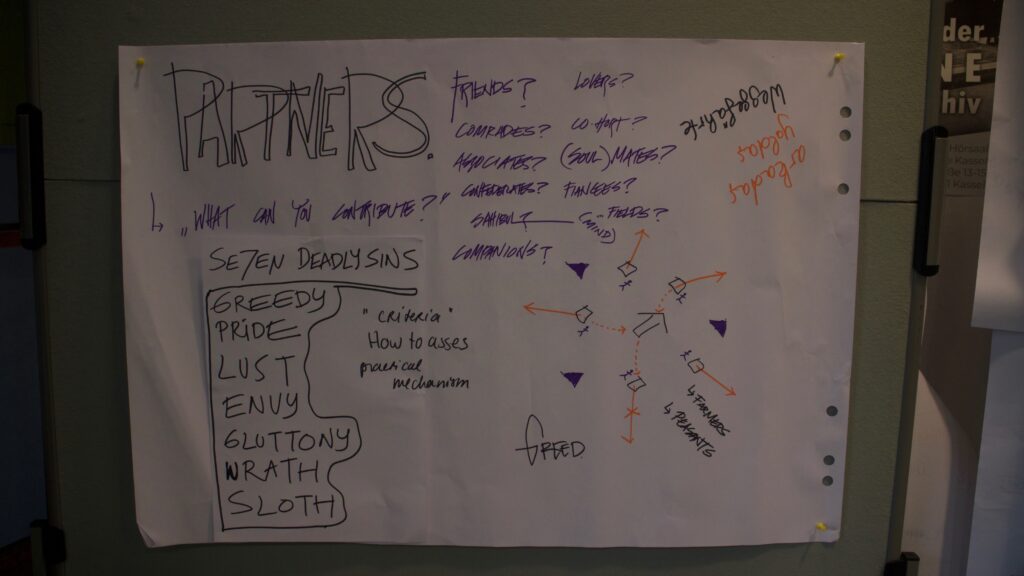 PARTNERS.
↳ „WHAT CAN YOU CONTRIBUTE?"
FRIENDS? LOVERS?
COMRADES? COHORT?
ASSOCIATES? (SOUL) MATES?
CONFEDERATES? FIANCEES?
FIELDS?
(MIND)
COMPANIONS?
Weggefährte
yoldaş
arkadaş
SE7EN DEADLY SINS
GREEDY
PRIDE
LUST
ENVY
GLUTTONY
WRATH
SLOTH
"criteria"
How to asses
practical
mechanism
GREED
↳ FARMERS
↳ PEASANTS
der..
NE
hiv
Hörsaa